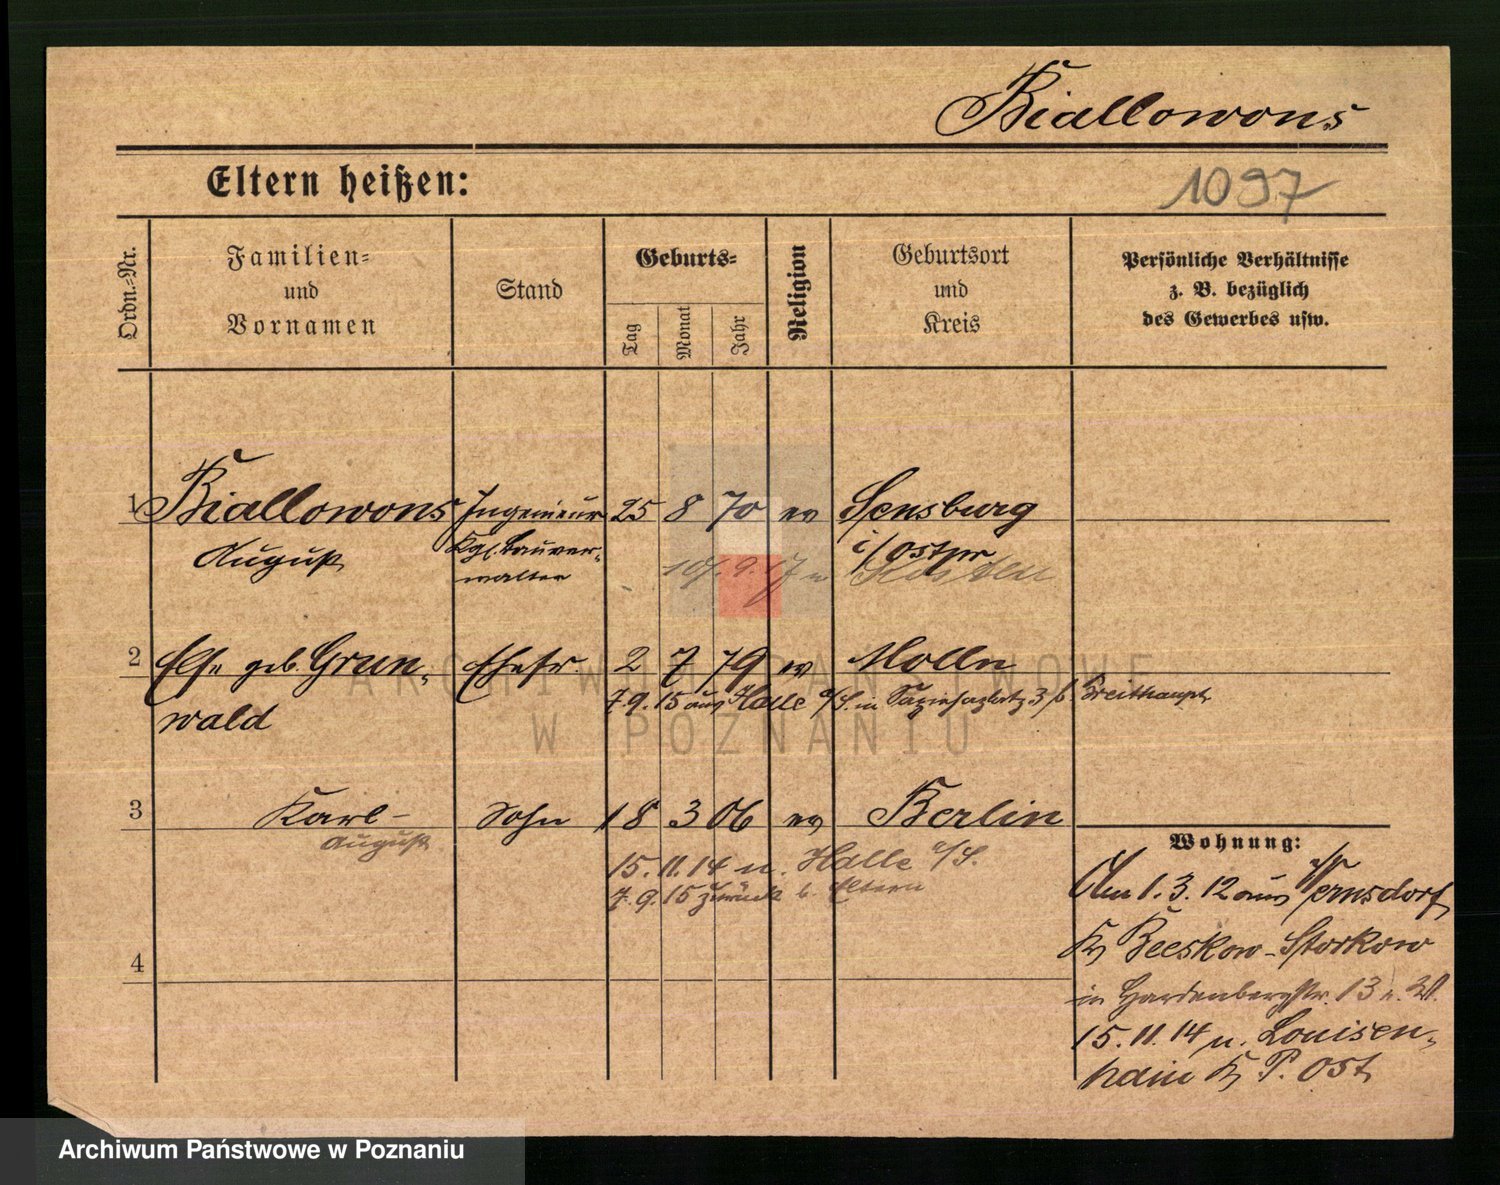 Biallowons
Eltern heißen:
1097
Ordn.-Nr.
Familien-
und
Vornamen
Stand
Geburts-
Tag
Monat
Jahr
Religion
Geburtsort
und
Kreis
Persönliche Verhältnisse
z. B. bezüglich
des Gewerbes usw.
1 Biallowons Ingenieur 25 8 70 ev Sensburg
August Kgl. Bauver- i/Ostpr
walter 10/. 9. 17 n Kosten
2 Else geb. Grun- Ehefr. 2 7 79 ev Molln
wald 7.9.15 aus Halle a/S. in 3 b. Breithaupt
ARCHIWUM PAŃSTWOWE
W POZNANIU
3 Karl- Sohn 18 3 06 ev Berlin
August
15.11.14 n. Halle a/S.
7.9.15 zurück b. Eltern
4
Wohnung:
Am 1.3.12 aus Wernsdorf
Kr Beeskow-Storkow
in Hardenbergstr. 13 z. W.
15.11.14 n. Louisen-
hain Kr P. Ost
Archiwum Państwowe w Poznaniu